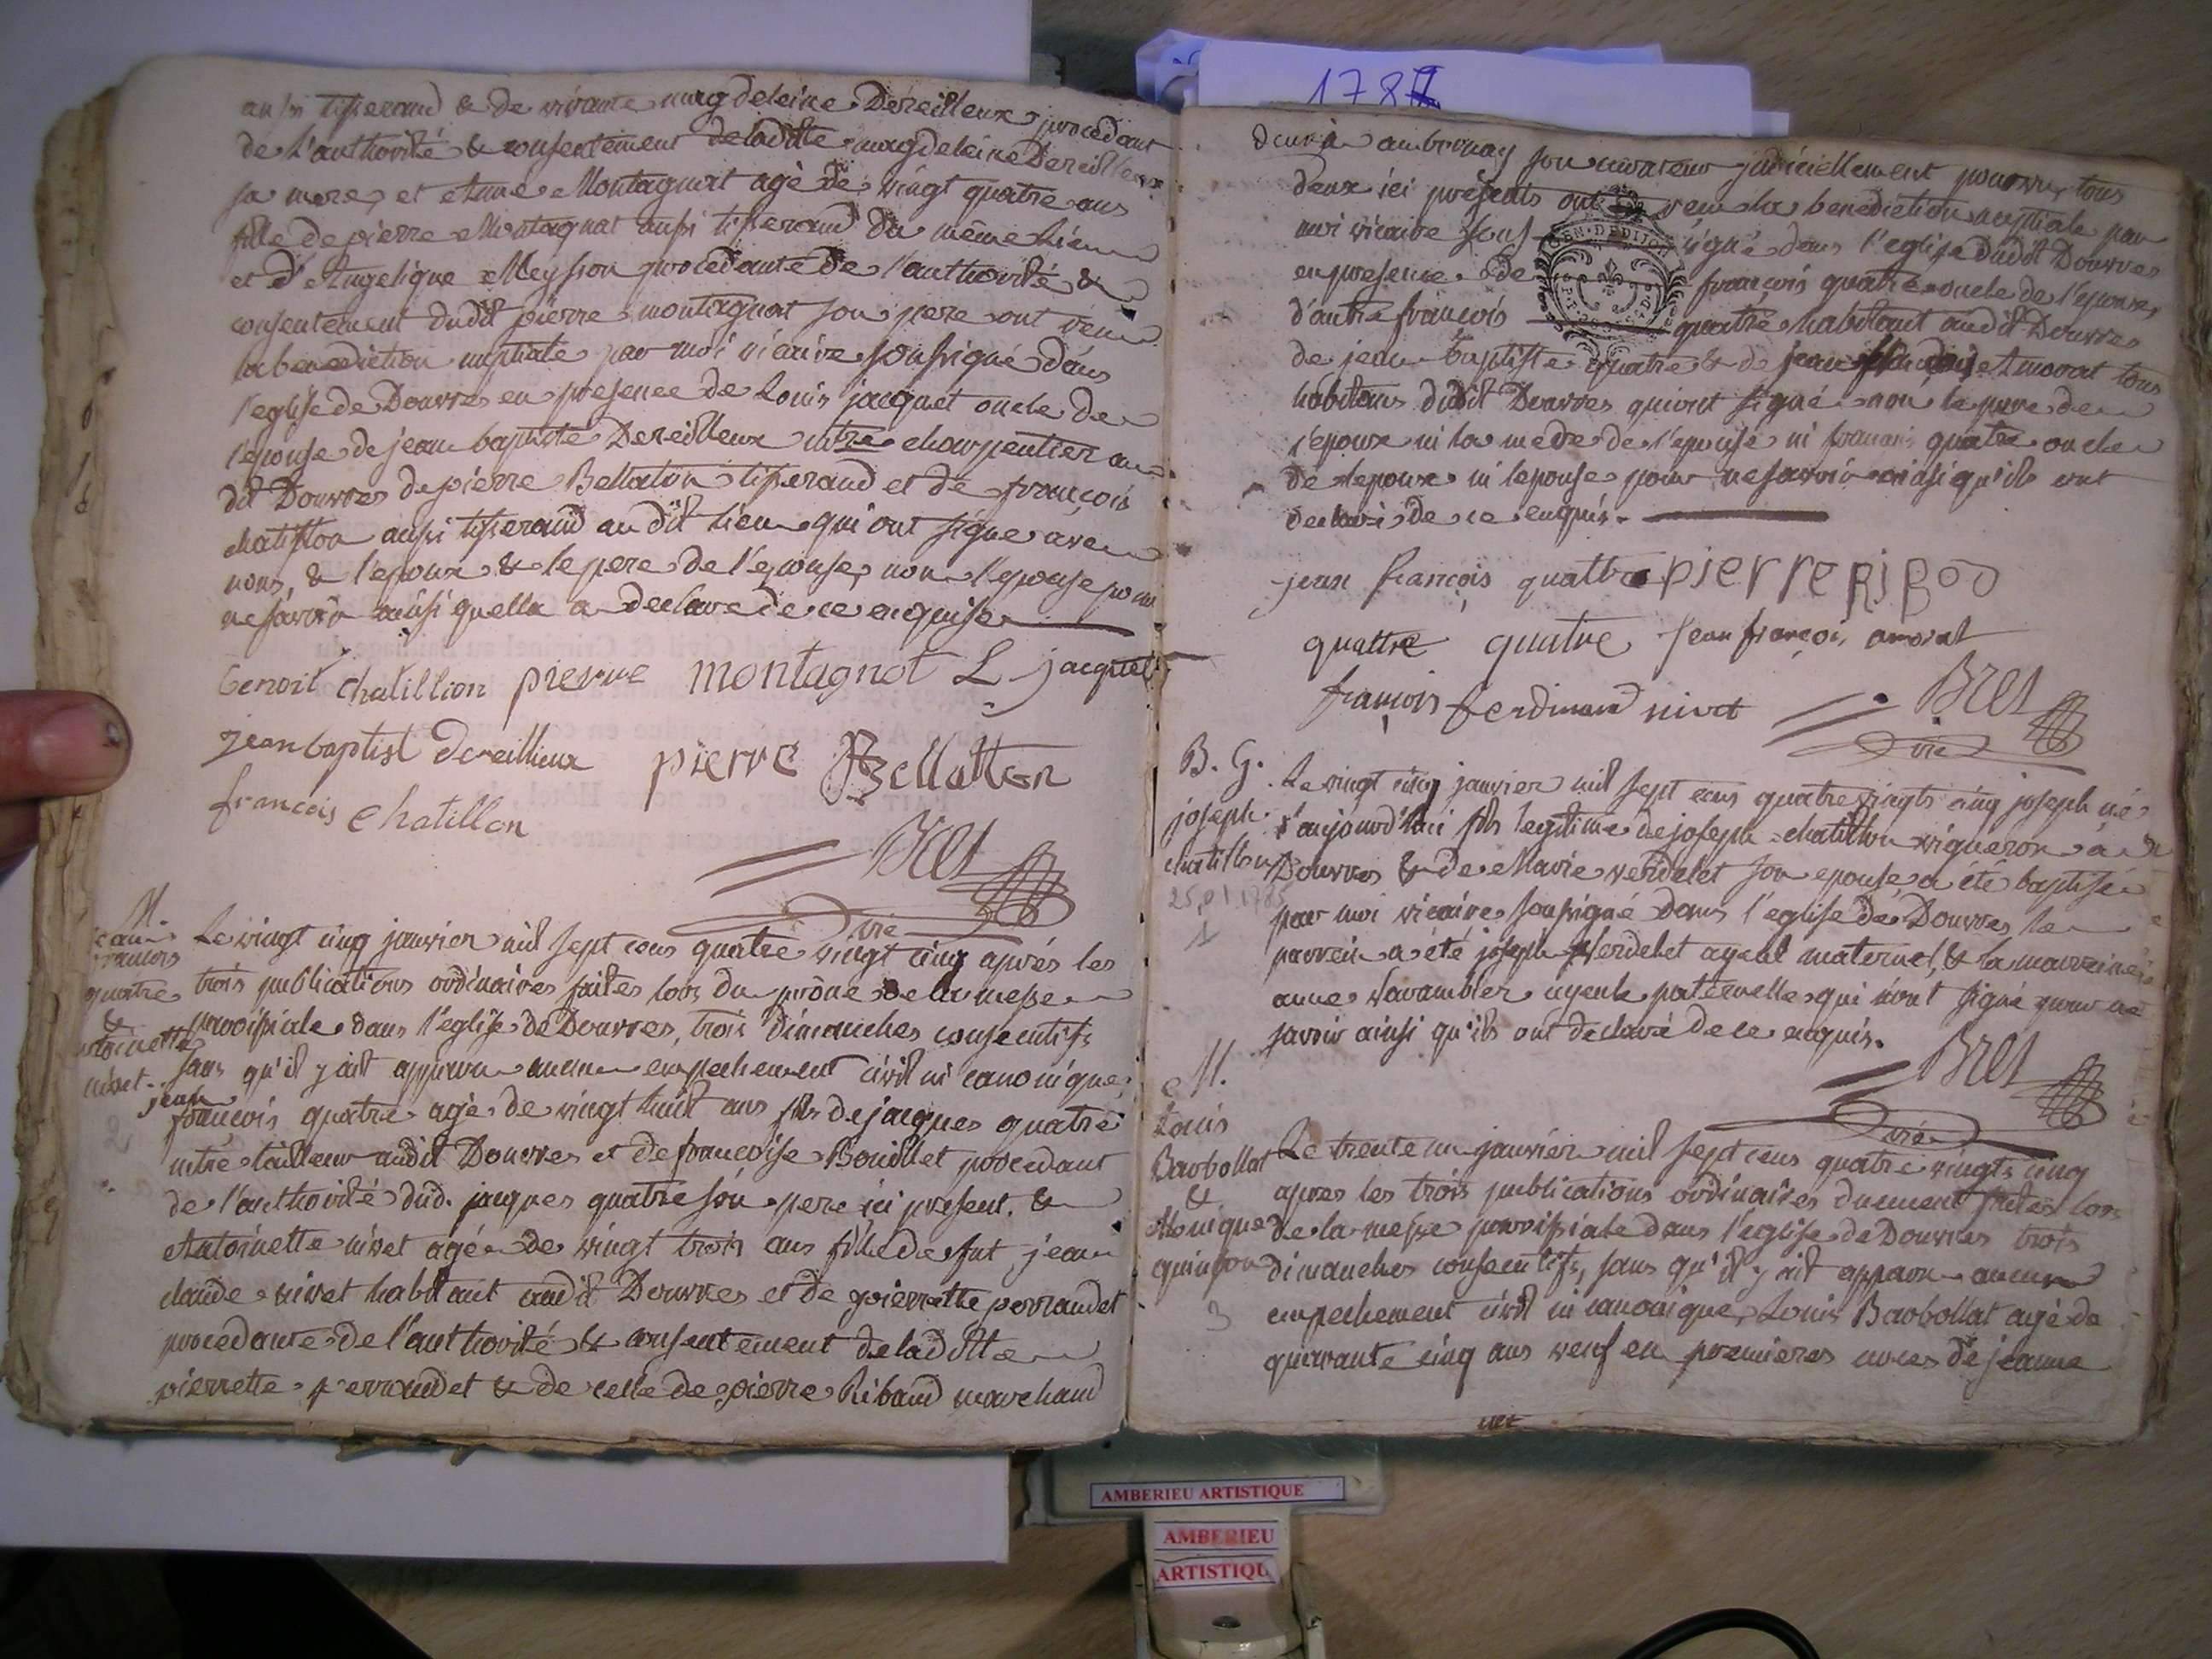 aussi tisserand & de vivante magdeleine Dereilleux procedant
de l'authorité & consentement de laditte magdeleine Dereilleux
sa mere, et Anne Montagnat agé de vingt quatre ans
fille de pierre Montagnat aussi tisserand du même lieu
et d'Angelique Meysson procedante de l'authorité &
consentement dudit pierre montagnat son pere ont reçu
la benediction nuptiale par moi vicaire soussigné dans
l'eglise de Douvres en presence de Louis jacquet oncle de
l'epouse de jean baptiste Dereilleux mtre charpentier au
dit Douvres de pierre Bellaton tisserand et de françois
chatillon aussi tisserand au dit lieu qui ont signé avec
nous, & l'epoux & le pere de l'epouse, non l'epouse pour
ne savoir ainsi quelle a declaré de ce enquise
benoit chatillion pierre montagnat L jacquet
jean baptist dereillieux pierre Bellatton
françois chatillon
Bret
vic
M.
jean
francois
quatre
&
antoinette
nivet
2
Le vingt cinq janvier mil sept cens quatre vingt cinq aprés les
trois publications ordinaires faites lors du prône de la messe
paroissiale dans l'eglise de Douvres, trois dimanches consecutifs
sans qu'il y ait apparu aucun empechement civil ni canonique,
jean
françois quatre agé de vingt huit ans fils de jacques quatre
mtre tailleur audit Douvres et de françoise Bouillet procedant
de l'authorité dud. jacques quatre son pere ici present. &
Antoinette nivet agée de vingt trois ans fille de fut jean
claude nivet habitant audit Douvres et de pierrette perraudet
procedante de l'authorité & consentement de laditte
pierrette perraudet & de celle de pierre Ribaud marchand
178
ambournay son curateur judiciellement pourvu, tous
deux ici presents ont reçu la benediction nuptiale par
moi vicaire sous signé dans l'eglise dudit Douvres
en presence de françois quatre oncle de l'epoux,
d'autre françois quatre habitant audit Douvres
de jean baptiste quatre & de jean françois Amorat tous
habitans dudit Douvres qui ont signé non le pere de
l'epoux ni la mere de l'epouse ni françois quatre oncle
de lepoux ni lepouse pour ne savoir ainsi qu'ils ont
declaré de ce enquis.
jean françois quattre pierre riboo
quattre quatre jean françois amorat
françois ferdinand nivet Bret
vic
B. G.
joseph
chatillon
25.01.1785
1
Le vingt cinq janvier mil sept cens quatre vingts cinq joseph né
d'aujourd'hui fils legitime de joseph chatillon vigneron à
Douvres & de Marie verdelet son epouse a été baptisé
par moi vicaire soussigné dans l'eglise de Douvres le
parrein a été joseph verdelet ayeul maternel, & la marreine
anne Varambier ayeule paternelle qui n'ont signé pour ne
savoir ainsi qu'ils ont declaré de ce enquis.
Bret
vic
M.
Louis
Barbollat
&
Monique
quinson
3
Le trente un janvier mil sept cens quatre vingts cinq
apres les trois publications ordinaires duement faites lors
de la messe paroissiale dans l'eglise de Douvres trois
dimanches consecutifs, sans qu'il y ait apparu aucun
empechement civil ni canonique, Louis Barbollat agé de
quarante cinq ans veuf en premieres noces de jeanne
AMBERIEU ARTISTIQUE
AMBERIEU
ARTISTIQU